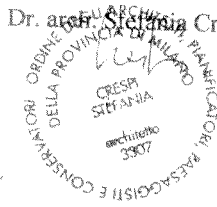 Dr. arch. Stefania Cr
ORDINE DEGLI ARCHITETTI, PIANIFICATORI, PAESAGGISTI E CONSERVATORI
DELLA PROVINCIA DI MILANO
CRESPI
STEFANIA
architetto
3907